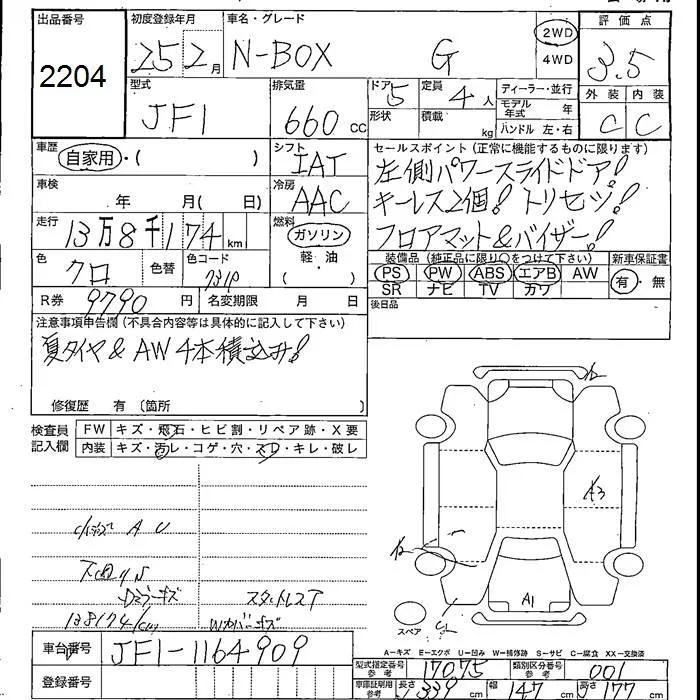 出品番号 初度登録年月 車名・グレード 評価点
2204 25 2月 N-BOX G 2WD 4WD 3.5
型式 排気量 ドア 5 定員 4人 ディーラー・並行 外装 内装
JF1 660cc 形状 積載 kg モデル年式 年 C C
ハンドル 左・右
車歴 自家用・( ) シフト IAT セールスポイント(正常に機能するものに限ります)
左側パワースライドドア!
車検 年 月( 日) 冷房 AAC キーレス2個! トリセツ!
走行 13万8千174km 燃料 ガソリン・軽・油 フロアマット&バイザー!
色 クロ 色替 色コード 731P 装備品(純正品に限り〇をつけて下さい) 新車保証書
PS PW ABS エアB AW 有・無
SR ナビ TV カワ
R券 9790円 名変期限 月 日 後日品
注意事項申告欄(不具合内容等は具体的に記入して下さい)
夏タイヤ&AW4本積込み!
修復歴 有 〔箇所 〕
検査員記入欄 FW キズ・飛石・ヒビ割・リペア跡・X要
内装 キズ・汚レ・コゲ・穴・スレ・キレ・破レ
A3
A U
スタットレスT
138174km
A1
スペア
A-キズ E-エクボ U-凹み W-補修跡 S-サビ C-腐食 XX-交換済
車台番号 JF1-1164909 型式指定番号 参考 17075 類別区分番号 参考 001
登録番号 車庫証明用 参考 長さ 339cm 幅 147cm 高さ 177cm